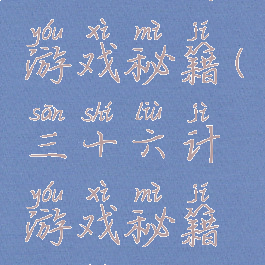 yóu xì mì jí
游戏秘籍(
sān shí liù jì
三十六计
yóu xì mì jí
游戏秘籍